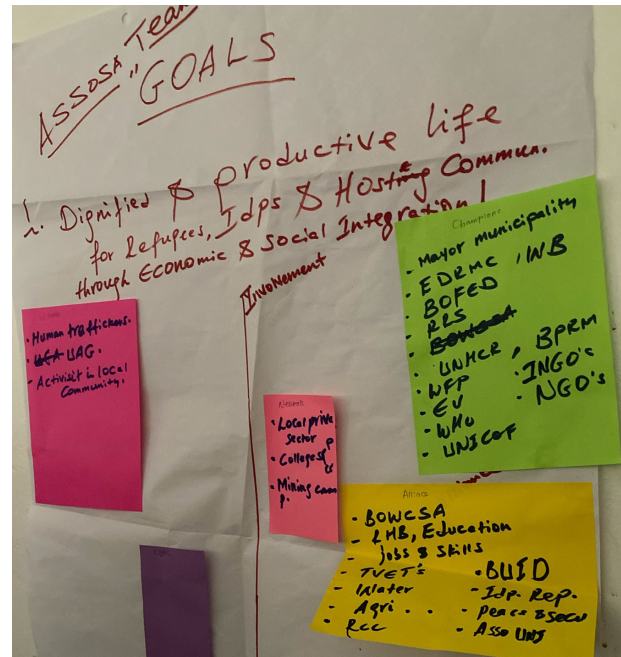 ASSOSA Team
"GOALS
1. Dignified & productive life
for Refugees, Idps & Hosting Commun.
through Economic & Social Integration!
Involvement
· Human traffickers.
UAG.
· Activisit in local
Community.
Network
· Local prive
Sector
· Colleges
· Mining
P.
Champions
· Mayor municipality
· EDRMC, WB
· BOFED
· RRS
· BOWCSA
· UNHCR, BPRM
· WFP · INGO's
· EU - NGO's
· WHO
- UNICEF
Allince
· BOWCSA
- RHB, Education
- jobs & skills
- TVET's
- Water
- Agri . .
- RCC
· BUID
- Idp. Rep.
- peace & secu
- Asso UNI